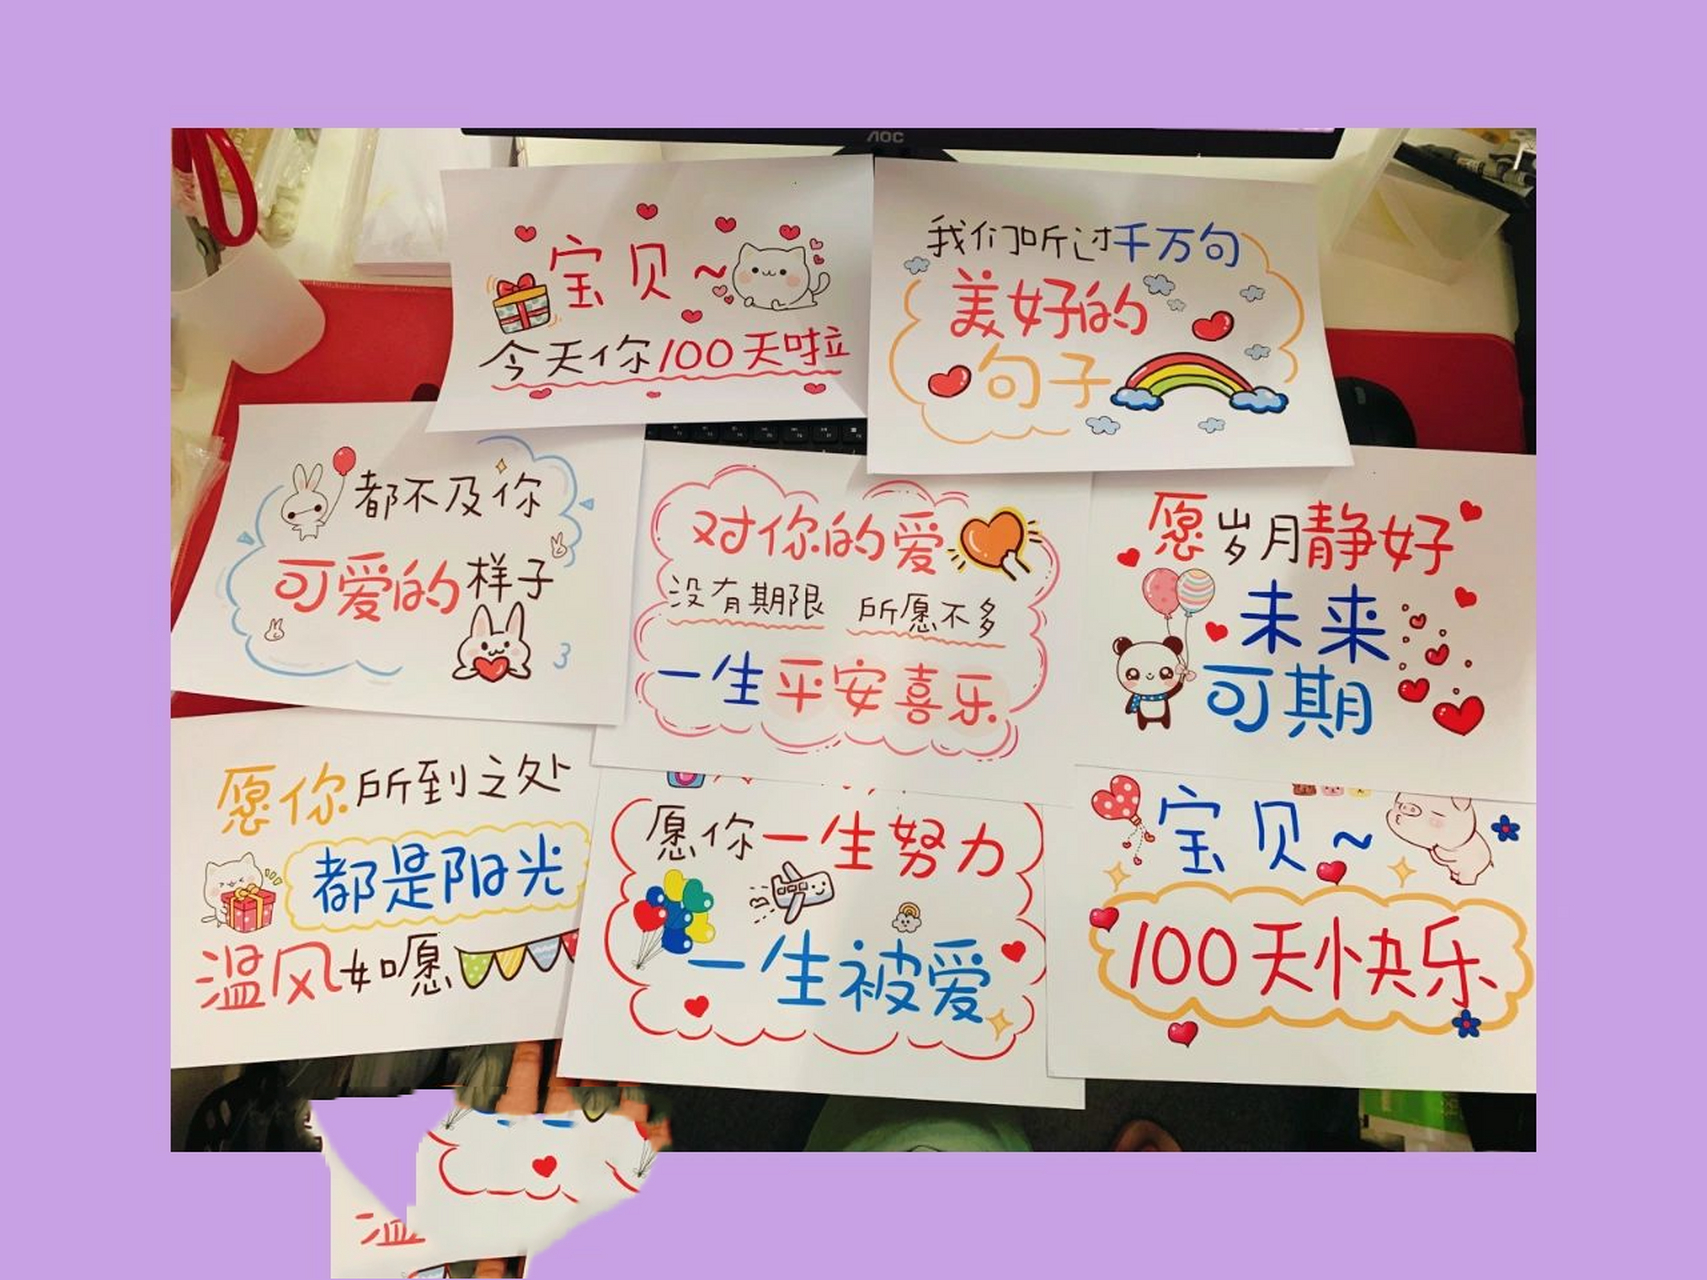 AOC
宝贝~
今天你100天啦
我们听过千万句
美好的
句子
都不及你
可爱的样子
3
对你的爱
没有期限 所愿不多
一生平安喜乐
愿岁月静好
未来
可期
愿你所到之处
都是阳光
温风如愿
愿你一生努力
一生被爱
宝贝~
100天快乐